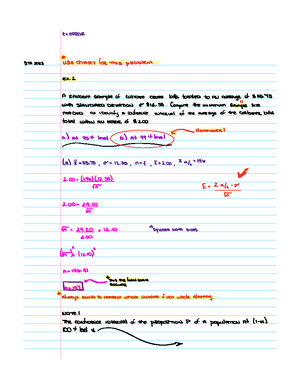 E= ERROR
STA 2023
* USE CHART for this problem
ex. 2
A random sample of customer order bills totaled to an average of $ 85.75
with standard deviation of $12.35. Compute the minimum sample size
needed to identify a confidence interval of the average of the customer bills
total within an error of $ 2.00
a) at 95% level b) At 99% level
Homework!
(a) x̄ = 85.75, σ = 12.35, n = ?, E = 2.00, Z α/2 = 1.96
2.00 = (1.96)(12.35)
√n
E = Z α/2 · σ
√n
2.00 = 24.20
√n
√n = 24.20 = 12.10
2.00
* Square both sides
(√n)² (12.10)²
n = 146.41
n = 147
* Always round to greater whole number even when
NOTE:
The confidence interval of the proportion P of a population at (1-α)
100% level is